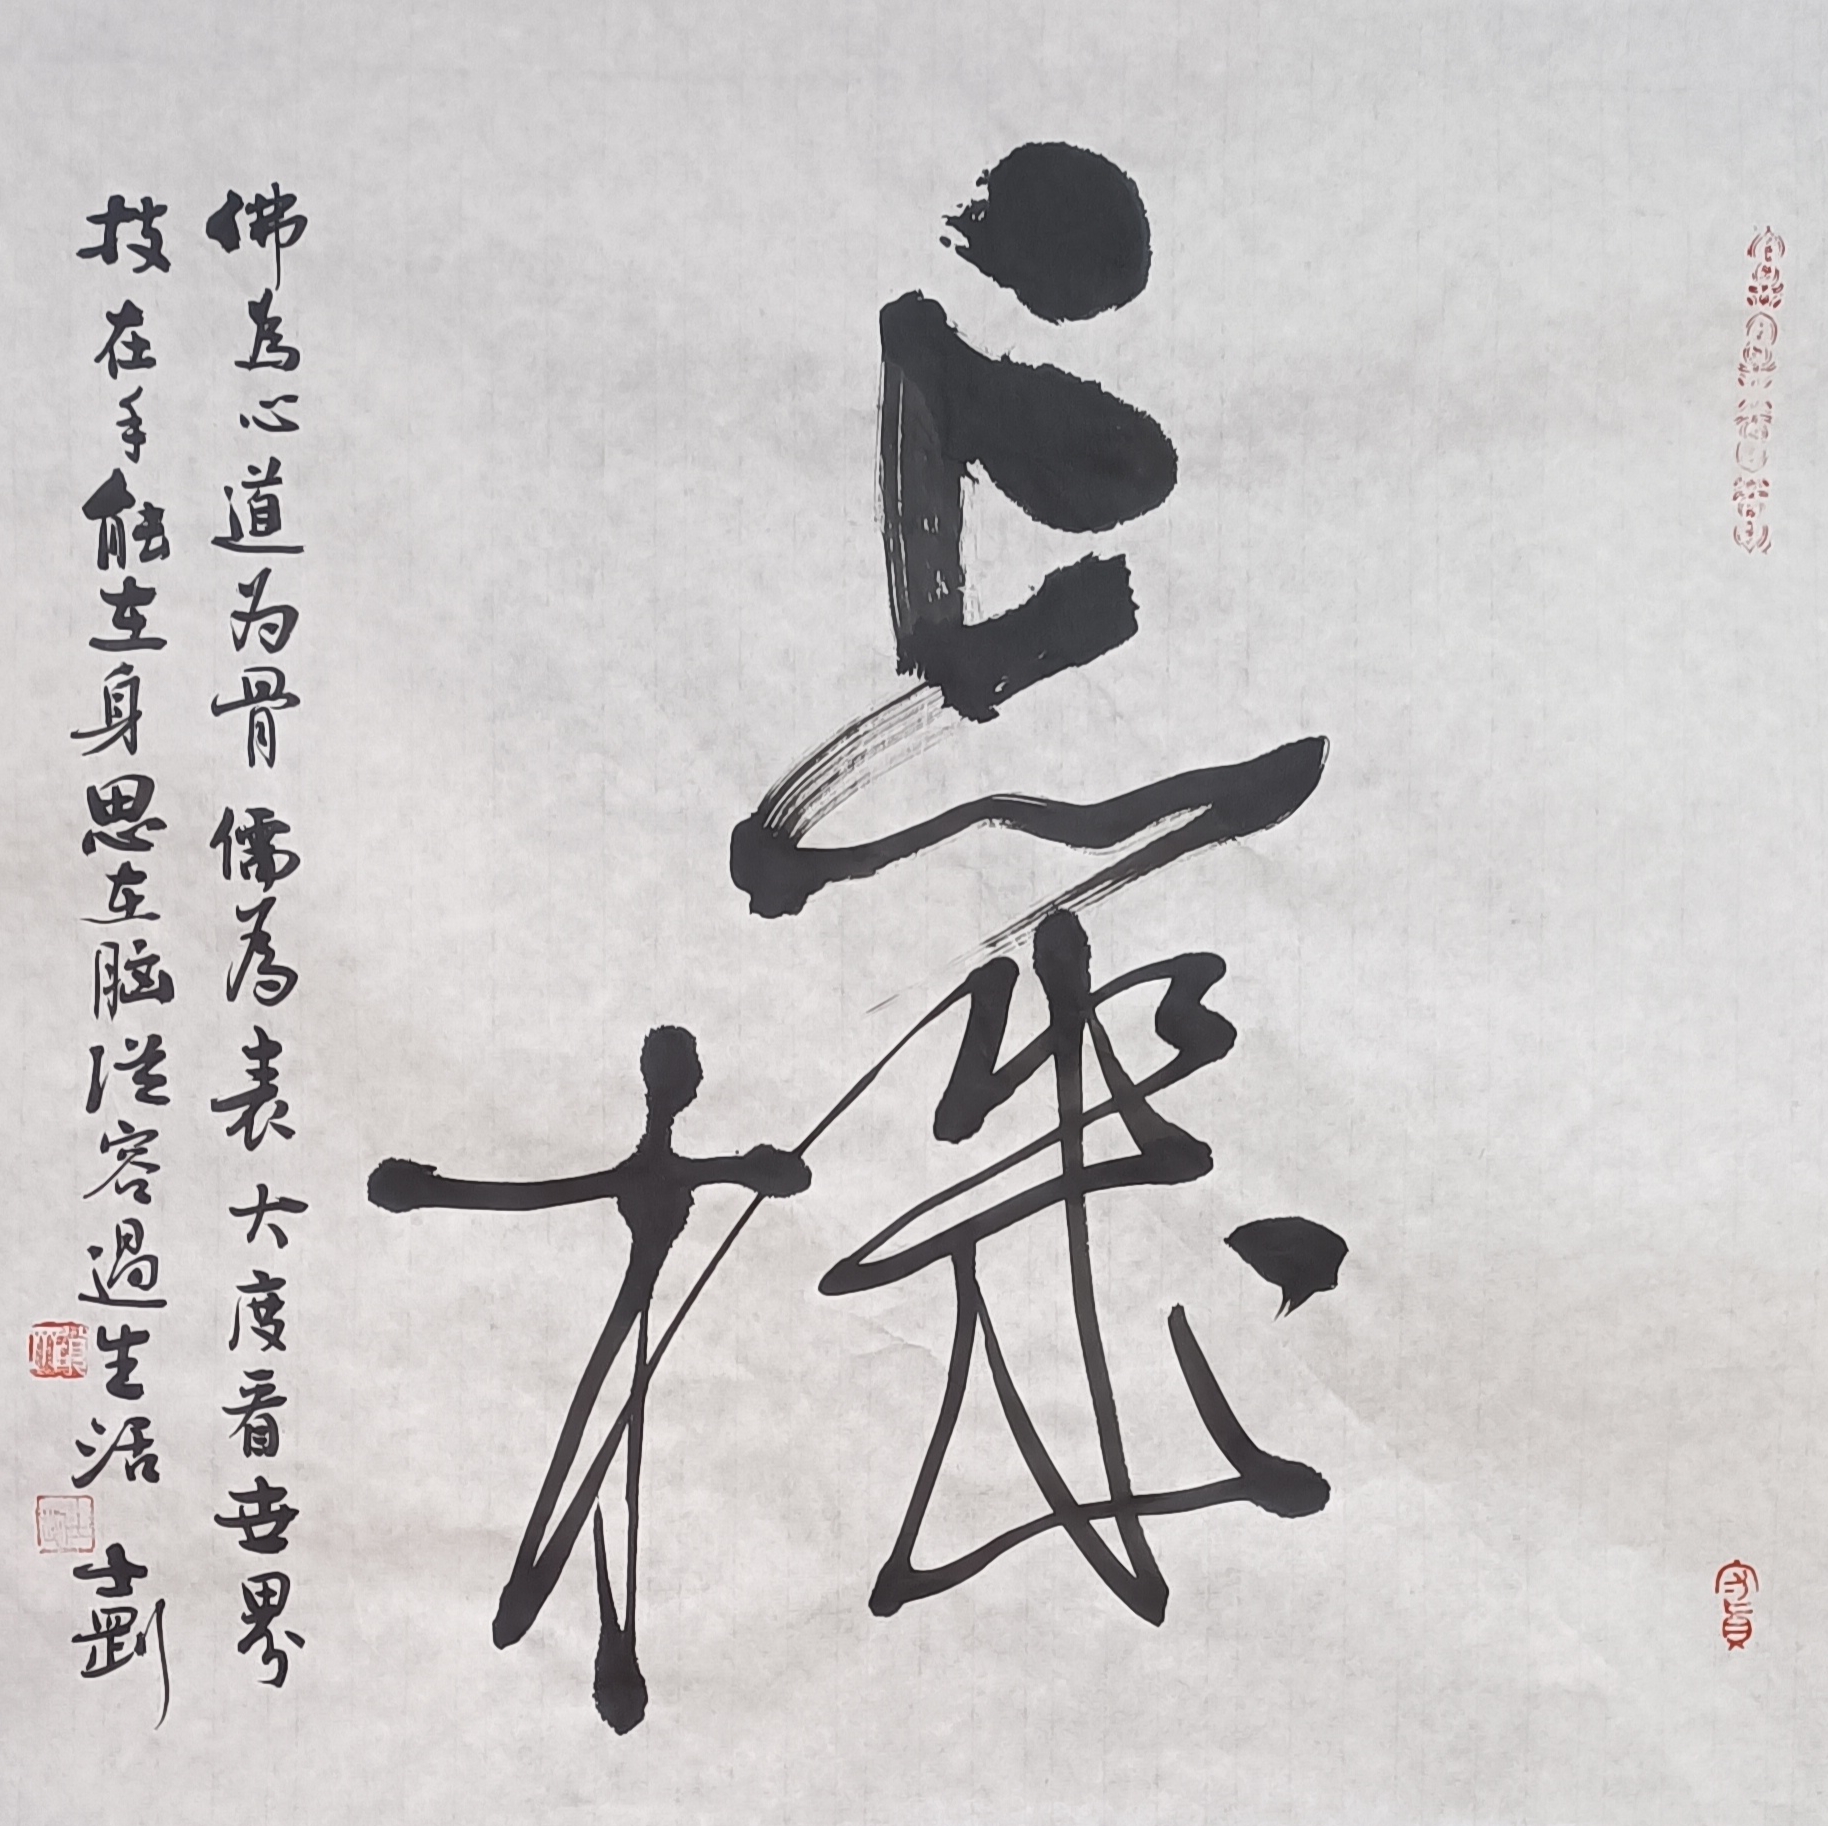 忘機
佛為心道为骨儒為表大度看世界
技在手能在身思在脑從容過生活 士剛
守貞